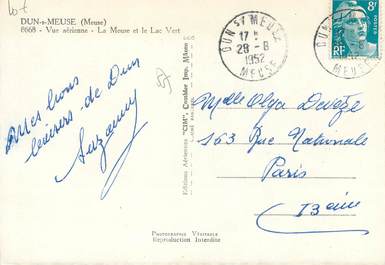 Lot
DUN-s-MEUSE (Meuse)
8668 - Vue aérienne - La Meuse et le Lac Vert
DUN S/ MEUSE
17
28-8
1952
MEUSE
8F
RF
Mes bons
baisers de Dun
Suzanne
Editions Aériennes "CIM", Combier Imp. Mâcon
Melle Olga
163 Rue Nationale
Paris
13 ème
PHOTOGRAPHIE VÉRITABLE
Reproduction Interdite